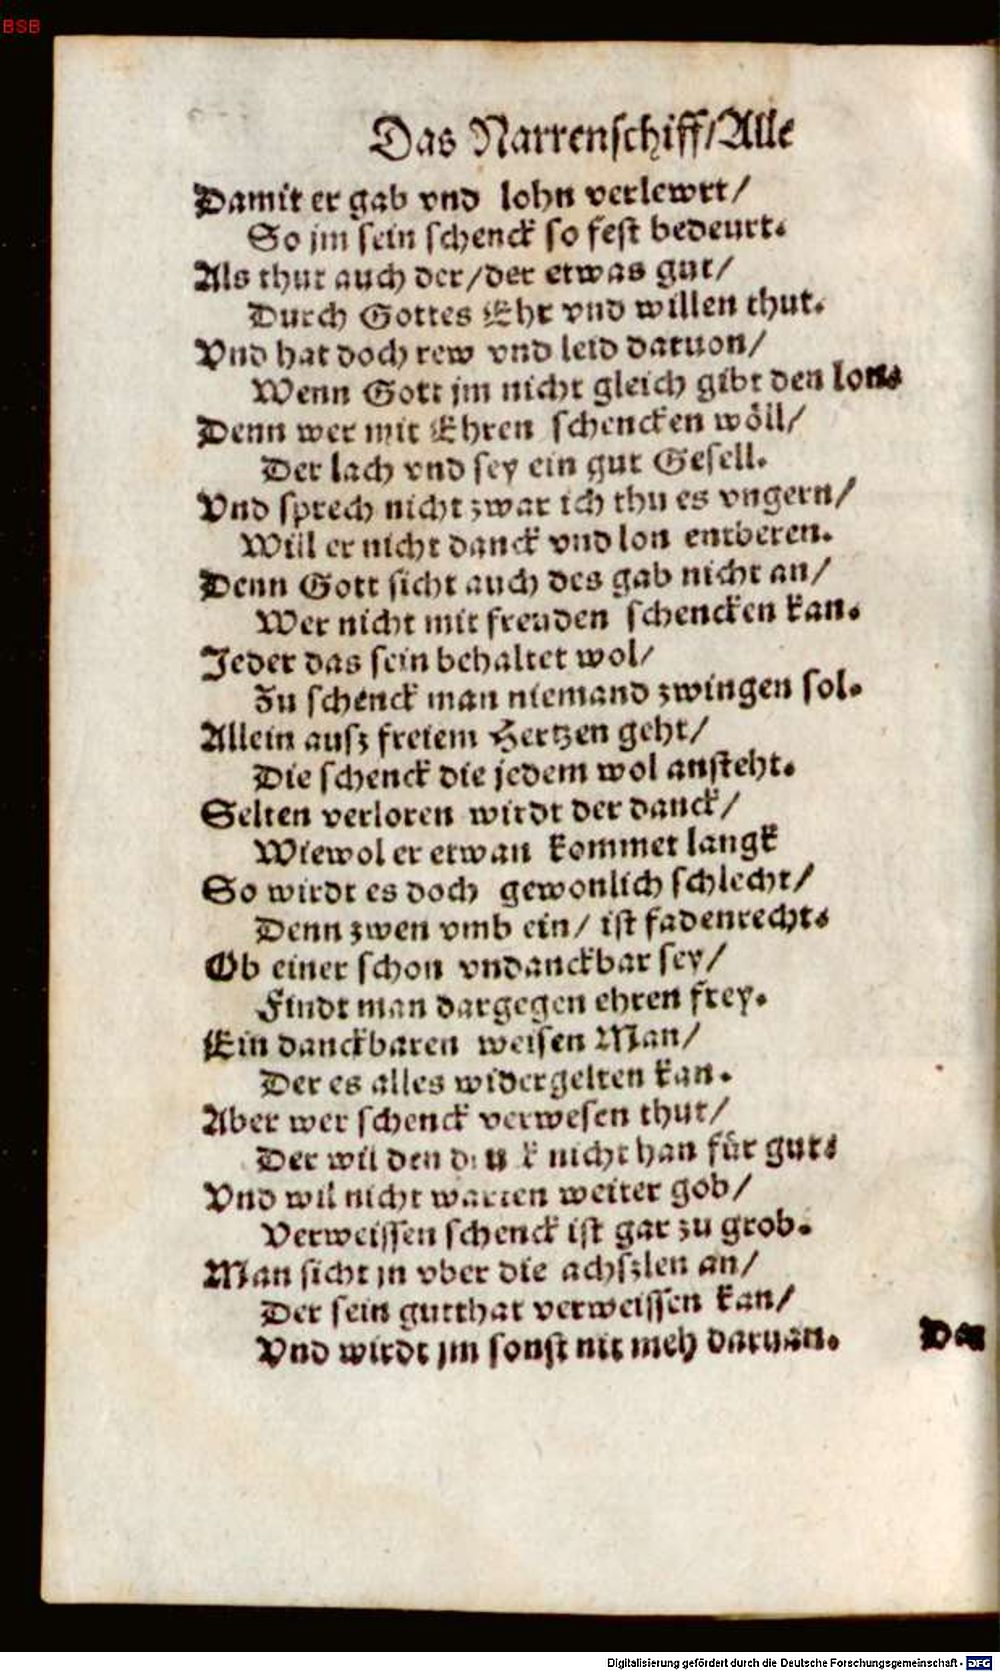 BSB
Das Narrenschiff/Alle
Damit er gab vnd lohn verlewrt/
So jm sein schenck so fest bedeurt.
Als thut auch der/der etwas gut/
Durch Gottes Ehr vnd willen thut.
Vnd hat doch rew vnd leid daruon/
Wenn Gott jm nicht gleich gibt den lon.
Denn wer mit Ehren schencken wöll/
Der lach vnd sey ein gut Gesell.
Vnd sprech nicht zwar ich thu es vngern/
Will er nicht danck vnd lon entberen.
Denn Gott sicht auch des gab nicht an/
Wer nicht mit freuden schencken kan.
Jeder das sein behaltet wol/
Zu schenck man niemand zwingen sol.
Allein ausz freiem Hertzen geht/
Die schenck die jedem wol ansteht.
Selten verloren wirdt der danck/
Wiewol er etwan kommet langk
So wirdt es doch gewonlich schlecht/
Denn zwen vmb ein/ ist fadenrecht.
Ob einer schon vndanckbar sey/
Findt man dargegen ehren frey.
Ein danckbaren weisen Man/
Der es alles widergelten kan.
Aber wer schenck verwesen thut/
Der wil den danck nicht han für gut.
Vnd wil nicht warten weiter gob/
Verweissen schenck ist gar zu grob.
Man sicht jn vber die achszlen an/
Der sein gutthat verweissen kan/
Vnd wirdt jm sonst nit meh daruan.
Digitalisierung gefördert durch die Deutsche Forschungsgemeinschaft - DFG